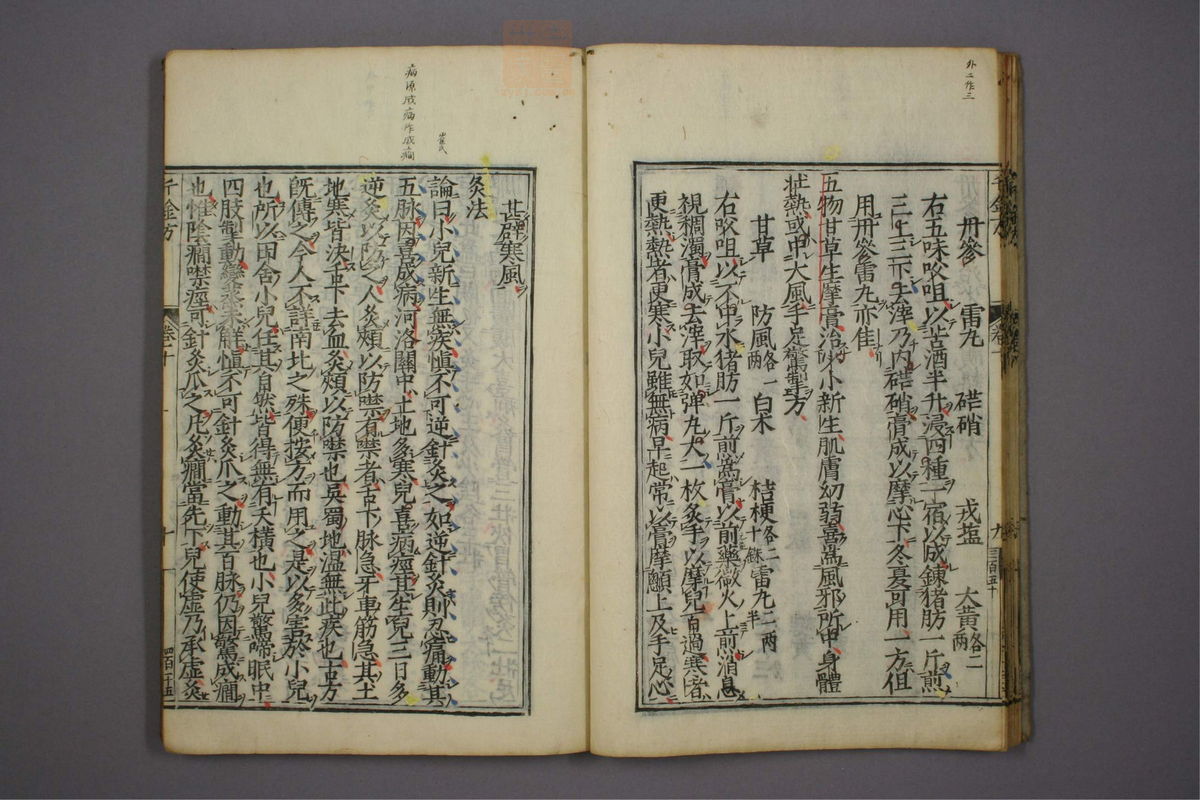 外二作三
丹參 雷丸 硭硝 戎塩 大黃各二兩
右五味㕮咀以苦酒半升浸四種一宿以成鍊猪肪一斤煎
三上三下去滓乃内硭硝膏成以摩心下冬夏可用一方但
用丹參雷丸亦佳
五物甘草生摩膏治少小新生肌膚幼弱喜爲風邪所中身體
壯熱或中大風手足驚掣方
甘草 防風各一兩 白朮 桔梗各二十銖 雷丸二兩半
右㕮咀以不中水猪肪一斤煎爲膏以前藥微火上煎消息
視稠濁膏成去滓取如弹丸大一枚炙手以摩兒百過寒者
更熱熱者更寒小兒雖無病早起常以膏摩顖上及手足心
千金方 卷十 九 三百五十
甚辟寒風
灸法
論曰小兒新生無疾愼不可逆針灸之如逆針灸則忍痛動其
五脉因喜成病河洛關中土地多寒兒喜病痓其生兒三日多
逆灸以防之人灸頰以防噤有噤者舌下脉急牙車筋急其土
地寒皆決舌下去血灸頰以防噤也吳蜀地温無此疾也古方
旣傳之今人不詳南北之殊便按方而用之是以多害於小兒
也所以田舍小兒任其自然皆得無有夭橫也小兒驚啼眠中
四肢掣動變蒸未解愼不可針灸爪之動其百脉仍因驚成癎
也惟陰癎噤痓可針灸爪之凡灸癎當先下兒使虛乃承虛灸
千金方 卷十 十 四百二十五
崔氏
病源成病作成癎